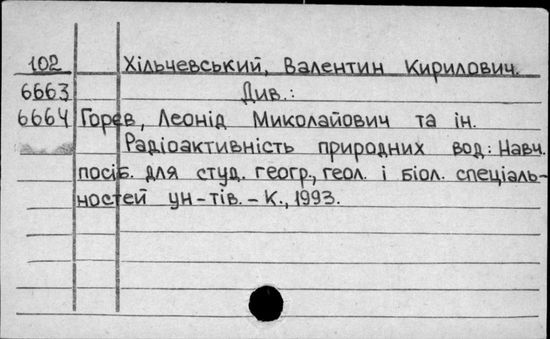 102 Хільчевський, Валентин Кирилович.
6663 Див.:
6664 Горєв, Леонід Миколайович та ін.
Радіоактивність природних вод: Навч.
посіб. для студ. геогр., геол. і біол. спеціаль-
ностей ун-тів. - К., 1993.